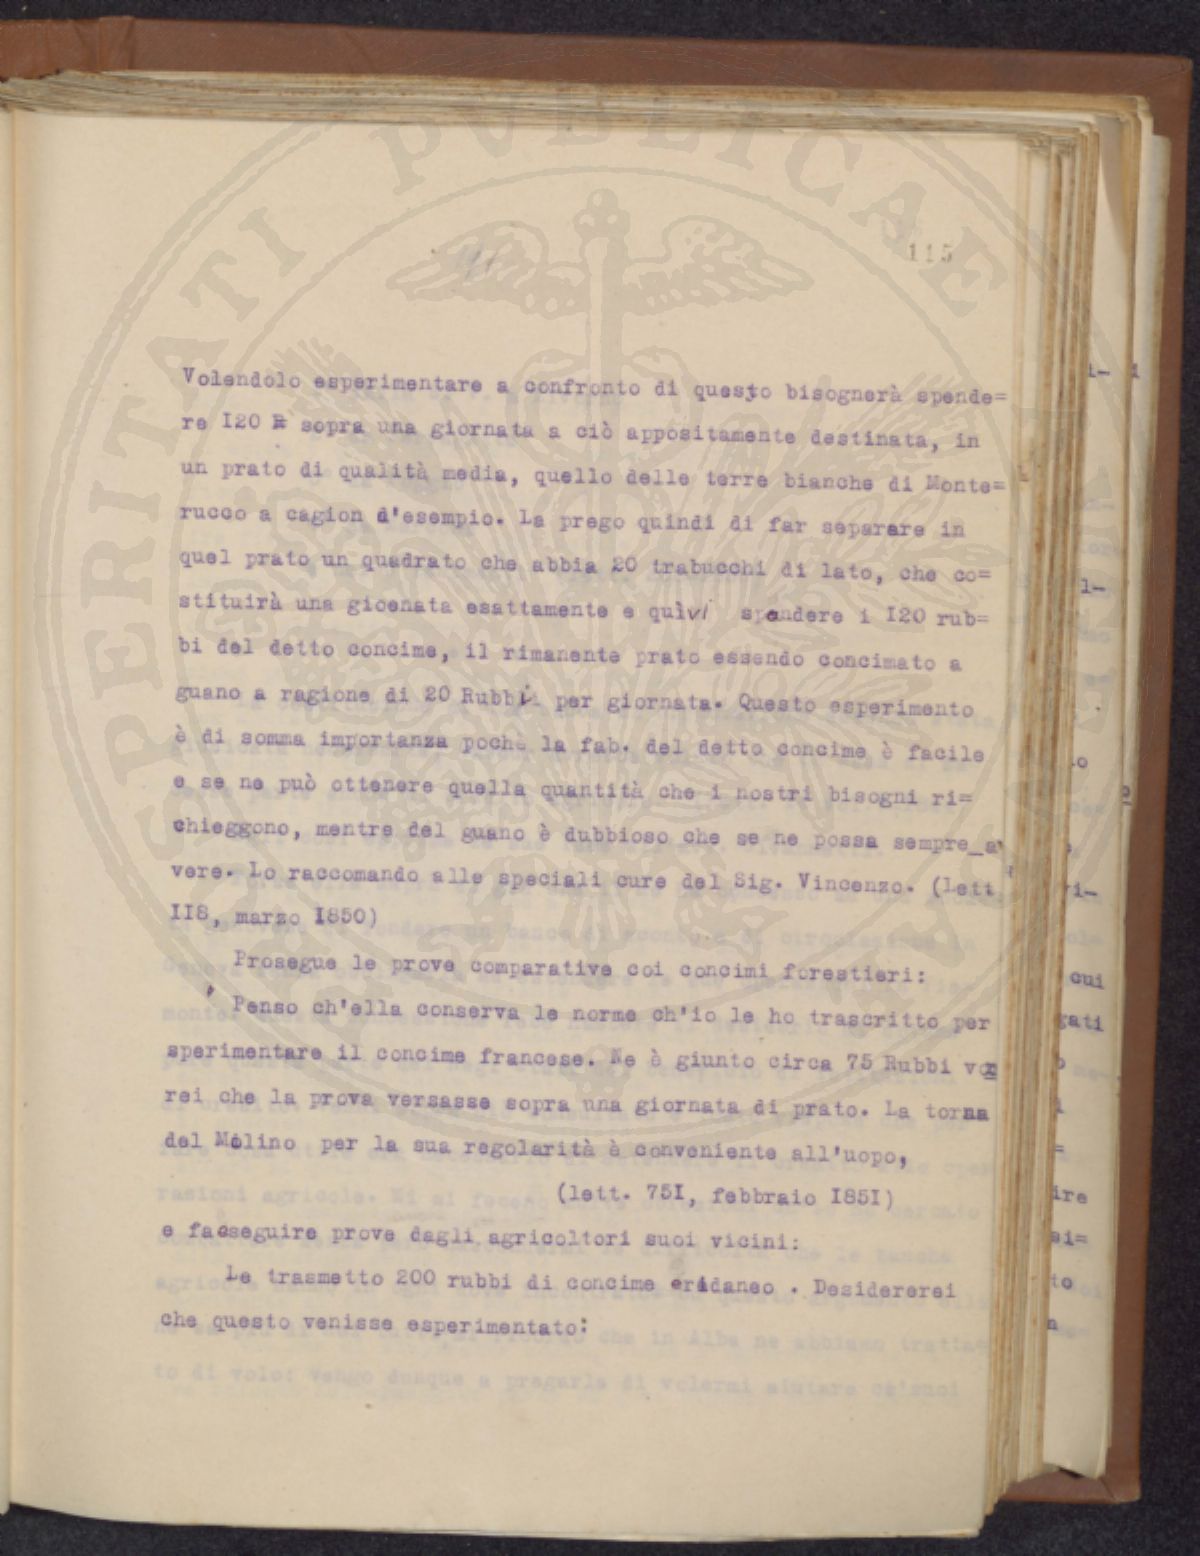 115
Volendolo esperimentare a confronto di questo bisognerà spende=
re I20 R sopra una giornata a ciò appositamente destinata, in
un prato di qualità media, quello delle terre bianche di Monte=
rucco a cagion d'esempio. La prego quindi di far separare in
quel prato un quadrato che abbia 20 trabucchi di lato, che co=
stituirà una gioenata esattamente e quìvi spandere i I20 rub=
bi del detto concime, il rimanente prato essendo concimato a
guano a ragione di 20 Rubbi per giornata. Questo esperimento
è di somma importanza pochè la fab. del detto concime è facile
e se ne può ottenere quella quantità che i nostri bisogni ri=
chieggono, mentre del guano è dubbioso che se ne possa sempre a
vere. Lo raccomando alle speciali cure del Sig. Vincenzo. (Lett
II8, marzo I850)
Prosegue le prove comparative coi concimi forestieri:
Penso ch'ella conserva le norme ch'io le ho trascritto per
sperimentare il concime francese. Ne è giunto circa 75 Rubbi vor
rei che la prova versasse sopra una giornata di prato. La torna
del Molino per la sua regolarità è conveniente all'uopo,
(lett. 75I, febbraio I85I)
e fa eseguire prove dagli agricoltori suoi vicini:
Le trasmetto 200 rubbi di concime eridaneo . Desidererei
che questo venisse esperimentato: